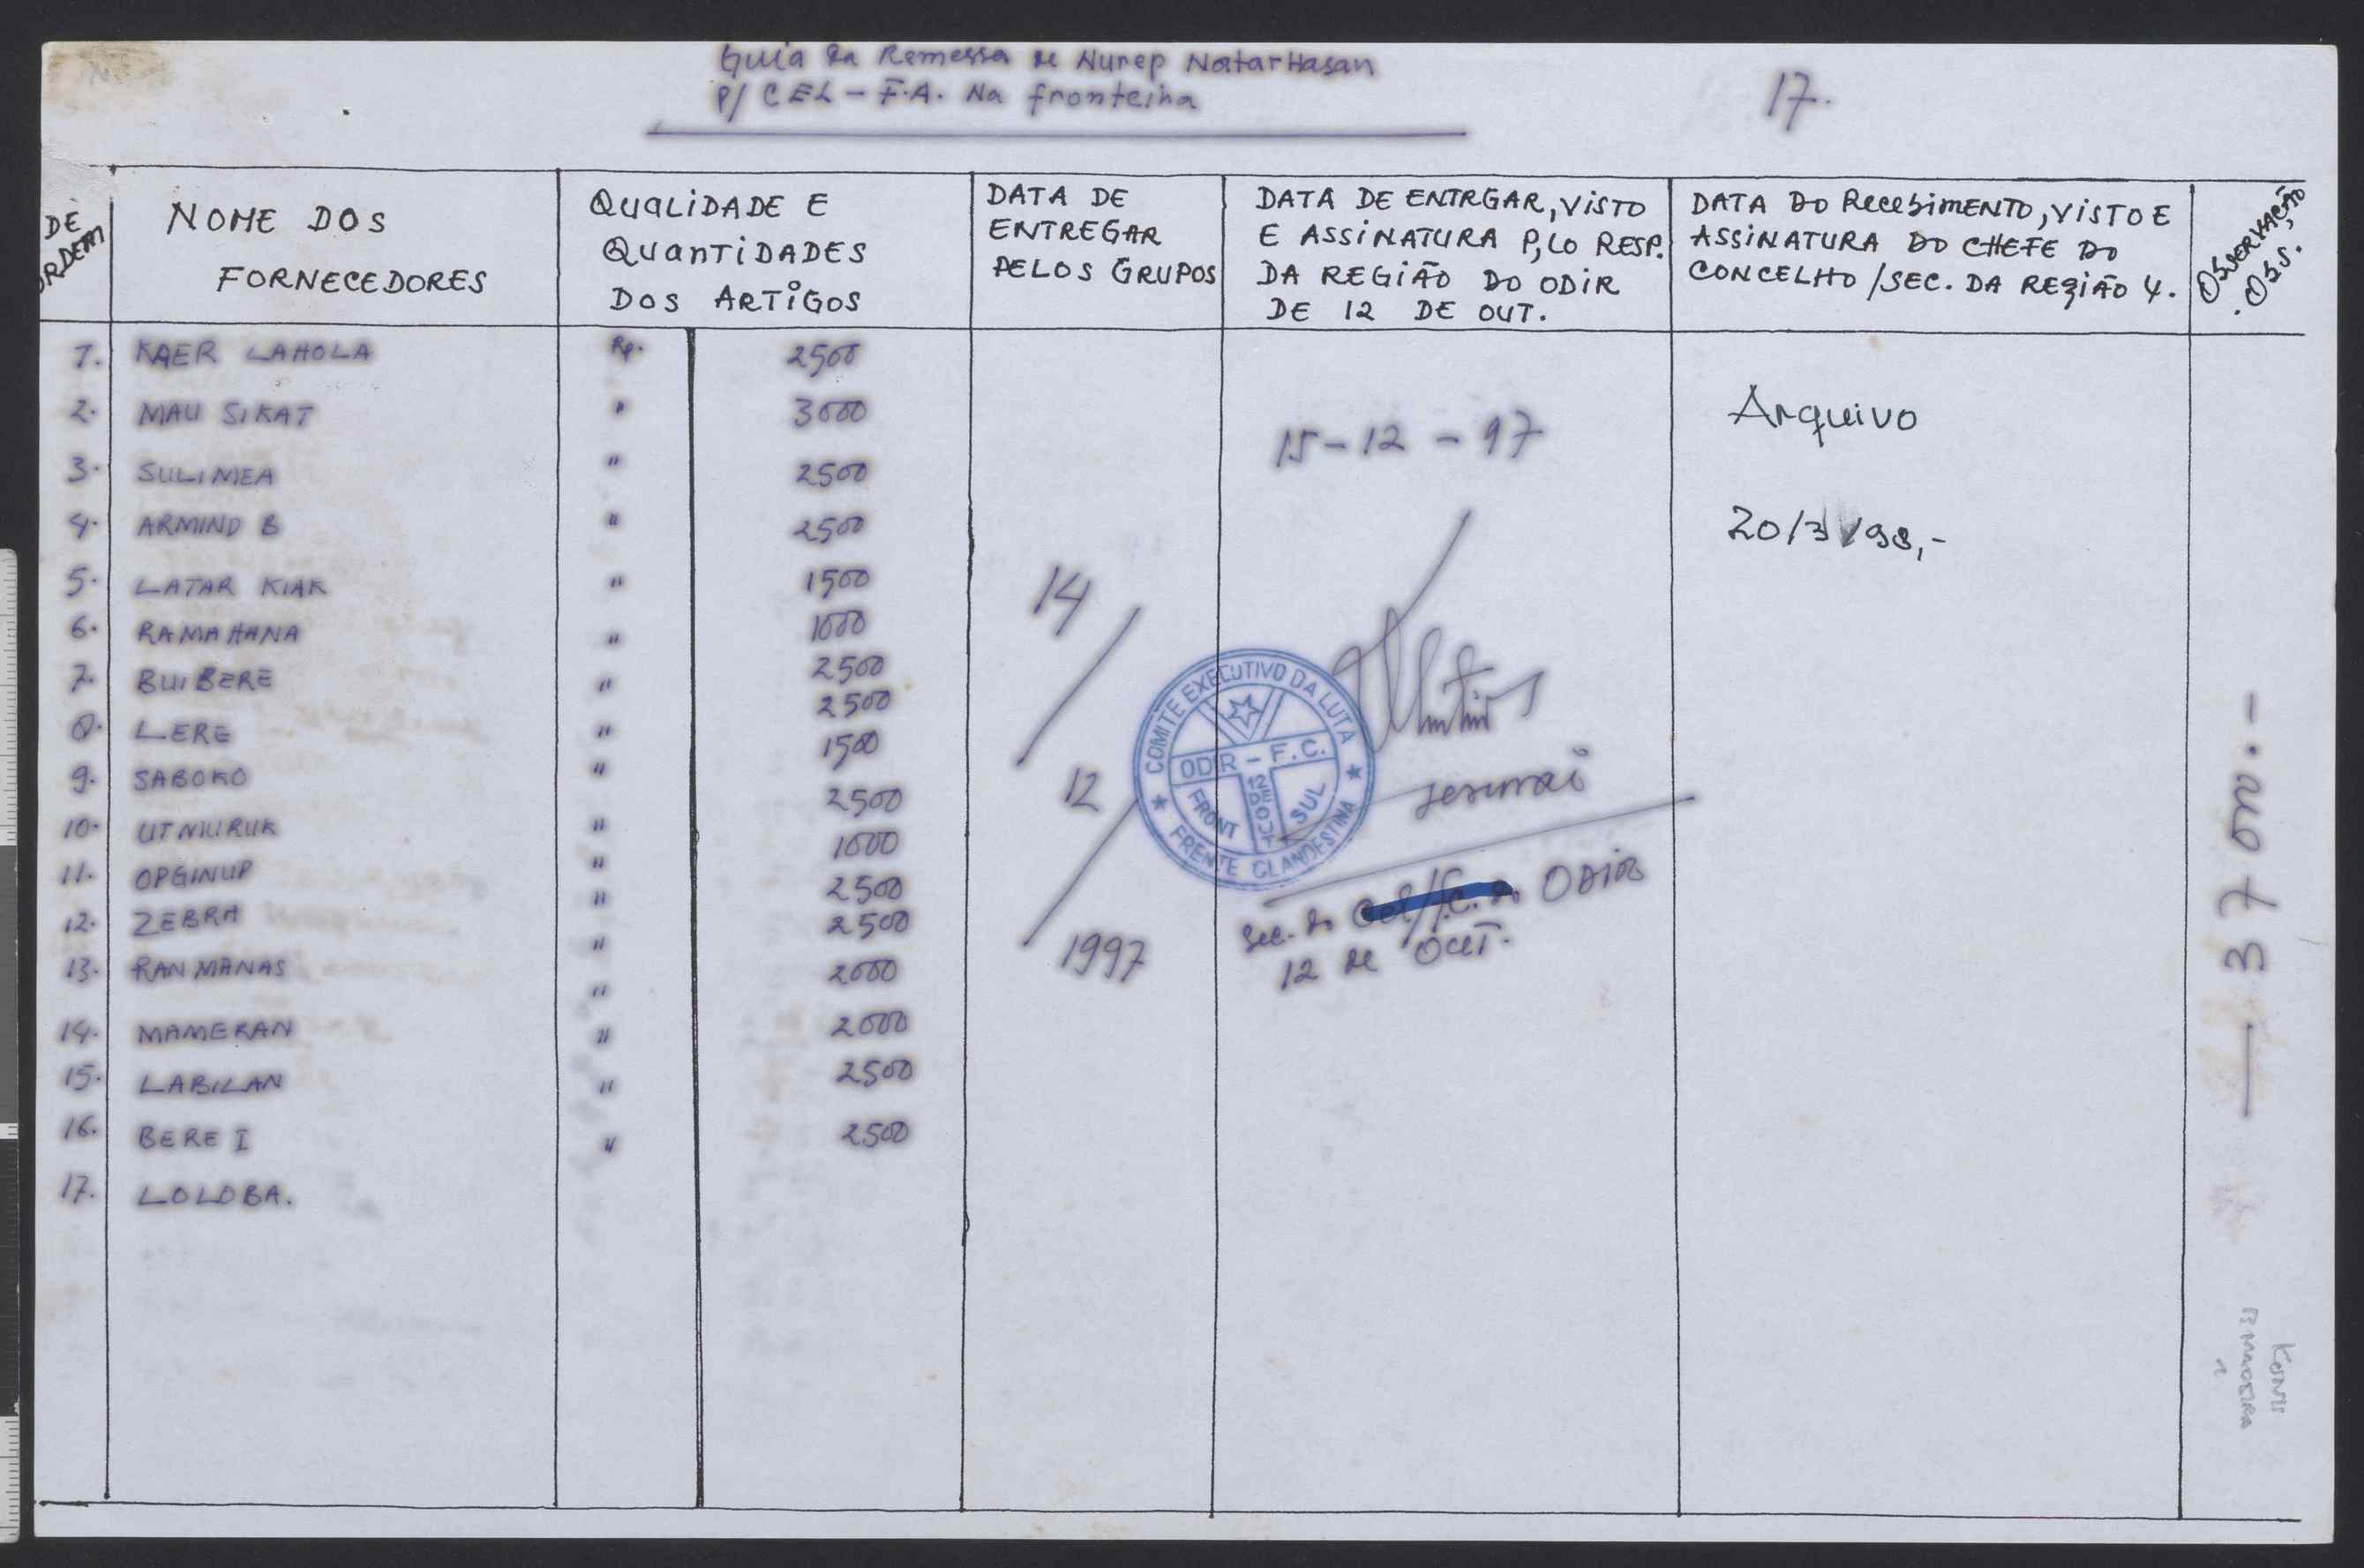 Guia da Remessa de Nurep Natar Hasan
P/ CEL - F.A. Na fronteiha
17.
DE ORDEM
NOME DOS FORNECEDORES
QUALIDADE E QUANTIDADES DOS ARTIGOS
DATA DE ENTREGAR PELOS GRUPOS
DATA DE ENTRGAR, VISTO E ASSINATURA P,LO RESP. DA REGIÃO DO ODIR DE 12 DE OUT.
DATA DO RecebiMENTO, VISTO E ASSINATURA DO CHEFE DO CONCELHO /SEC. DA REgiÃO 4.
OBSERVAÇÃO, OBS.
1. KAER LAHOLA Rp. 2500
2. MAU SIKAT " 3000
3. SULIMEA " 2500
4. ARMIND B " 2500
5. LATAR KIAK " 1500
6. RAMAHANA " 1000
7. BUI BERE " 2500
8. LERE " 2500
9. SABOKO " 1500
10. UTMURUK " 2500
11. OPGINUP " 1000
12. ZEBRA " 2500
13. RAN MANAS " 2500
14. MAMERAN " 2000
15. LABILAN " 2000
16. BERE I " 2500
17. LOLOBA. " 2500
14/12/1997
15-12-97
COMITE EXECUTIVO DA LUTA
ODIR - F.C.
12 DE OUT
FRONT SUL
FRENTE CLANDESTINA
Sec. do ODIR
12 de OUT.
Arquivo
20/3/98,-
37000.-